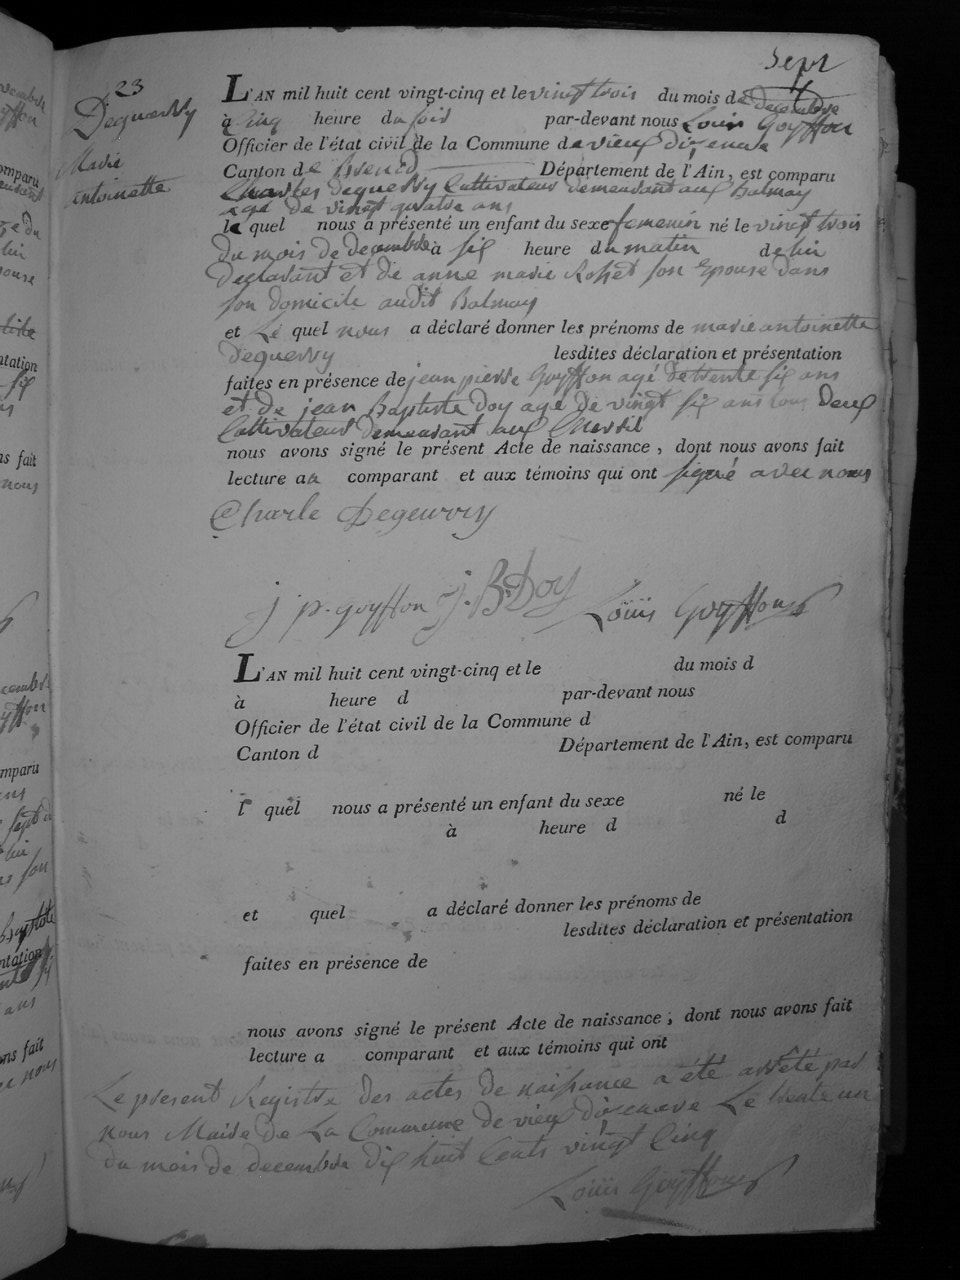 Sept
4
23
Dequerry
Marie
antoinette
L'AN mil huit cent vingt-cinq et le vingt trois du mois de decembre
à Cinq heure du soir par-devant nous Louis Goyffon
Officier de l'état civil de la Commune de vieu dizenave
Canton de Brenod Département de l'Ain, est comparu
Charles dequerry Cultivateur demeurant aux Balmay
agé de vingt quatre ans
le quel nous a présenté un enfant du sexe femenin né le vingt trois
du mois de decembre à six heure du matin de lui
declarant et de anne marie Rosset son Epouse dans
son domicile audit Balmay
et Le quel nous a déclaré donner les prénoms de marie antoinette
dequerry lesdites déclaration et présentation
faites en présence de jean pierre Goyffon agé de trente six ans
et de jean Baptiste Doy agé de vingt six ans tous deux
Cultivateur demeurant aux
nous avons signé le présent Acte de naissance, dont nous avons fait
lecture au comparant et aux témoins qui ont signé avec nous
Charle Degeurry
j p. goyffon J. B. Doy Loüis Goyffon
L'AN mil huit cent vingt-cinq et le du mois d
à heure d par-devant nous
Officier de l'état civil de la Commune d
Canton d Département de l'Ain, est comparu
l quel nous a présenté un enfant du sexe né le
à heure d d
et quel a déclaré donner les prénoms de
lesdites déclaration et présentation
faites en présence de
nous avons signé le présent Acte de naissance, dont nous avons fait
lecture a comparant et aux témoins qui ont
Le present Registre des actes de naissance a été arrêté par
nous Maire de La Commune de vieu dizenave Le trente un
du mois de decembre dix huit Cents vingt Cinq
Loüis Goyffon